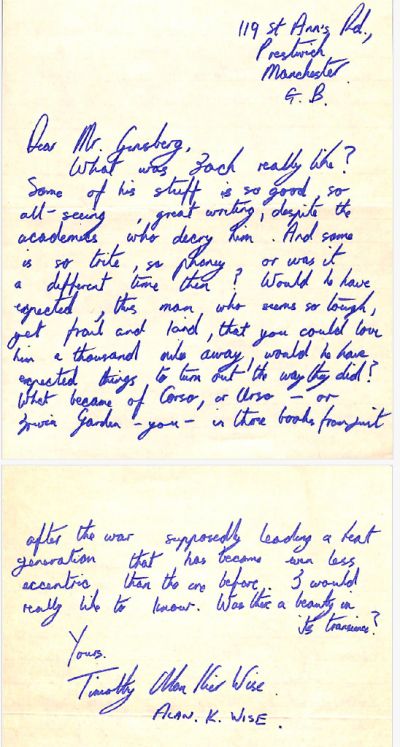 119 St Ann's Rd.,
Prestwich
Manchester
G. B.
Dear Mr. Ginsberg,
What was Jack really like?
Some of his stuff is so good, so
all-seeing, great writing, despite the
academics who decry him. And some
is so trite, so phoney or was it
a different time then? Would he have
expected, this man who seems so tough,
yet frail and kind, that you could love
him a thousand miles away, would he have
expected things to turn out the way they did?
What became of Corso, or Urso – or
Irwin Garden – you – in those books from just
after the war supposedly leading a beat
generation that has become even less
eccentric than the one before. I would
really like to know. Was there a beauty in
its
Yours.
Timothy Alan Wise.
ALAN. K. WISE.